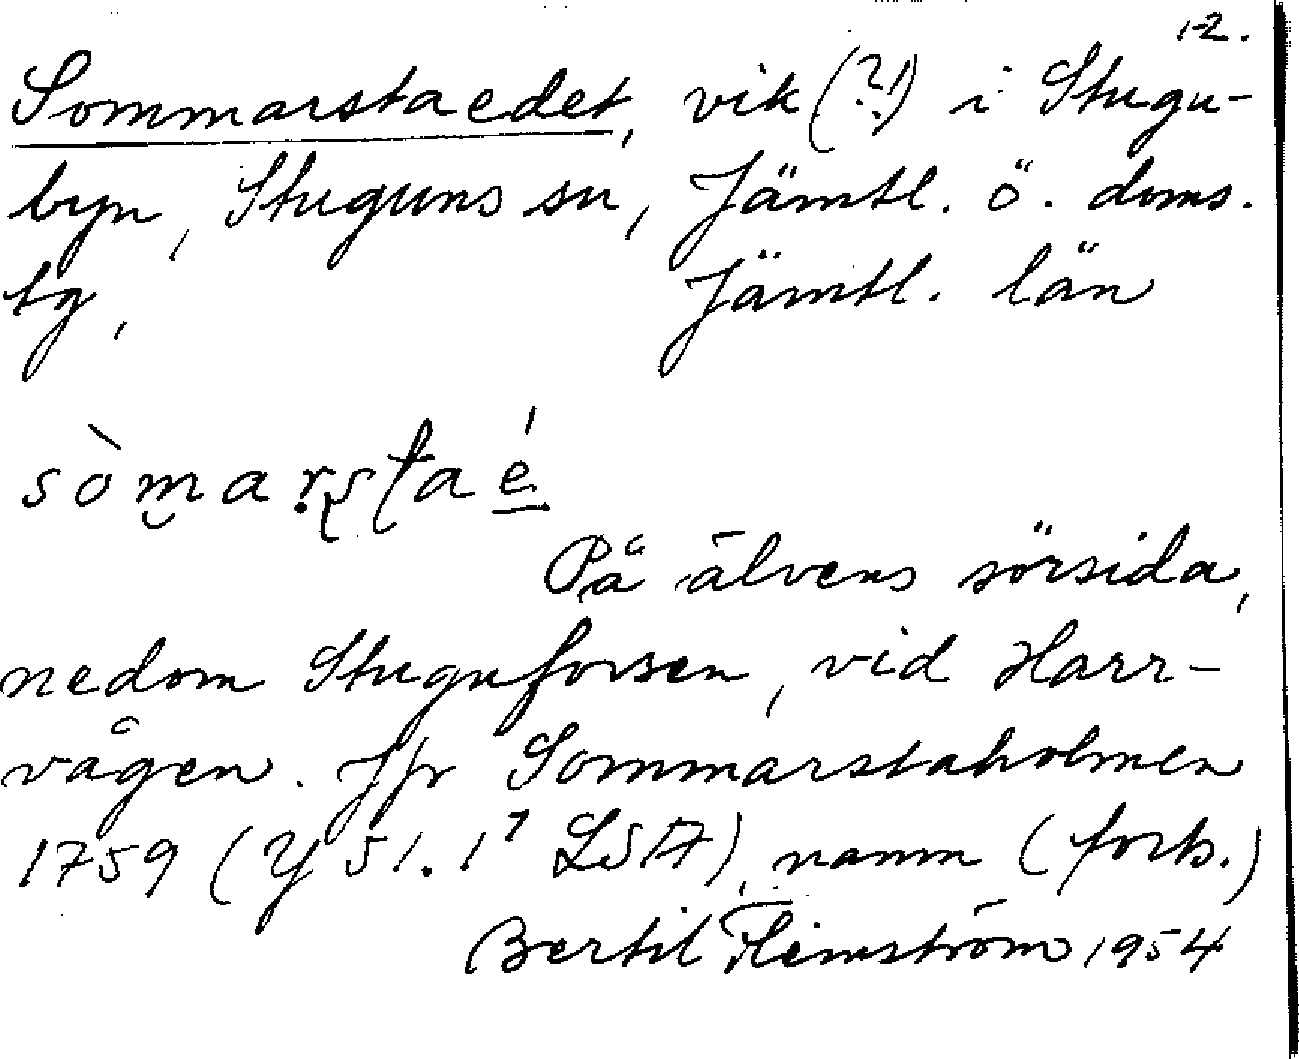 1-2.
Sommarstaedet, vik (?!) i Stugu-
byn, Stuguns sn, Jämtl. ö. doms.
tg, Jämtl. län
sòmarstaé
På älvens sörsida,
nedom Stuguforsen, vid Harr-
vågen. Jfr Sommarstaholmen
1759 (Y 51. 1⁷ LSA), namn (forts.)
Bertil Flemström 1954